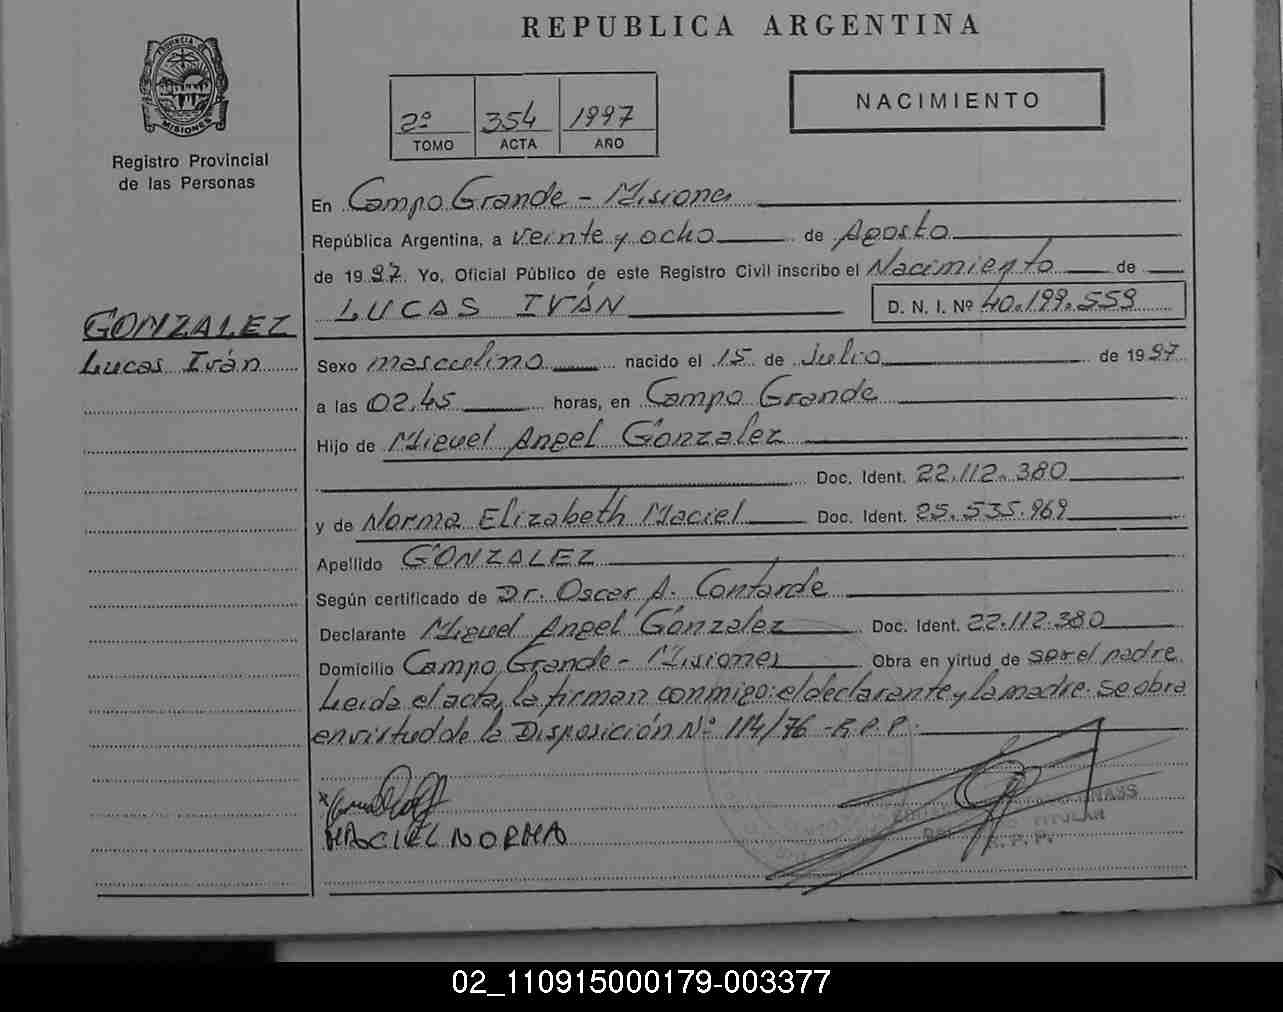 REPUBLICA ARGENTINA
PROVINCIA DE
MISIONES
Registro Provincial
de las Personas
2º 354 1997
TOMO ACTA AÑO
NACIMIENTO
En Campo Grande - Misiones
República Argentina, a veinte y ocho de Agosto
de 1997. Yo, Oficial Público de este Registro Civil inscribo el Nacimiento de
LUCAS IVÁN D. N. I. Nº 40.199.559
GONZALEZ
Lucas Iván
Sexo masculino nacido el 15 de Julio de 1997
a las 02,45 horas, en Campo Grande
Hijo de Miguel Angel Gonzalez
Doc. Ident. 22.112.380
y de Norma Elizabeth Maciel Doc. Ident. 25.535.969
Apellido GONZALEZ
Según certificado de Dr. Oscar A. Contarde
Declarante Miguel Angel Gonzalez Doc. Ident. 22.112.380
Domicilio Campo Grande - Misiones Obra en virtud de ser el padre
Leida el acta, la firman conmigo: el declarante y la madre. Se obra
en virtud de la Disposición Nº 114/76 - R.P.P.
MACIEL NORMA
TITULAR
R. P. P.
02_110915000179-003377